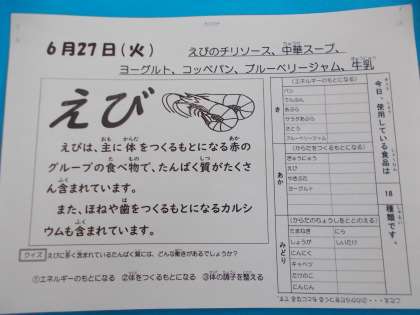 6月27日(火)
えびのチリソース、中華スープ、
ヨーグルト、コッペパン、ブルーベリージャム、牛乳
えび
えびは、主に体をつくるもとになる赤の
グループの食べ物で、たんぱく質がたくさ
ん含まれています。
また、ほねや歯をつくるもとになるカルシ
ウムも含まれています。
クイズ えびに多く含まれているたんぱく質には、どんな働きがあるでしょうか?
①エネルギーのもとになる ②体をつくるもとになる ③体の調子を整える
今日、使用している食品は 18 種類です。
き
(エネルギーのもとになる)
パン
でんぷん
あぶら
さとう
ブルーベリージャム
あか
(からだをつくるもとになる)
ぎゅうにゅう
えび
ヨーグルト
みどり
(からだのちょうしをととのえる)
たまねぎ にら
しょうが しいたけ
にんにく
キャベツ
たけのこ
にんじん